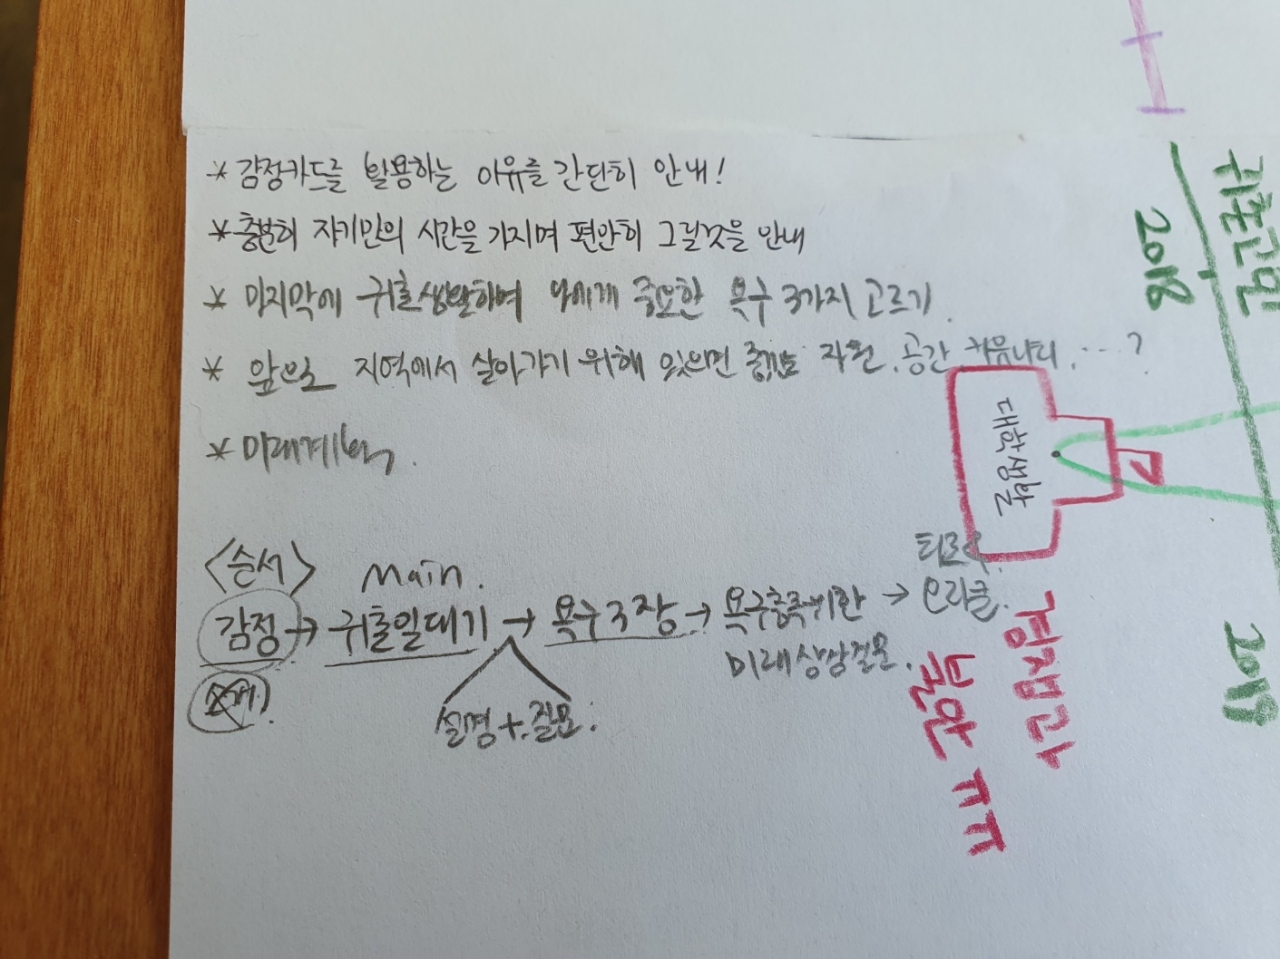 *감정카드를 활용하는 이유를 간단히 안내!
*충분히 자기만의 시간을 가지며 편안히 그릴것을 안내
* 마지막에 귀촌생활하며 나에게 중요한 욕구 3가지 고르기.
* 앞으로 지역에서 살아가기 위해 있으면 좋겠는 자원, 공간 커뮤니티 ...?
* 미래계획.
<순서> Main.
감정 → 귀촌일대기 → 욕구 3장 → 욕구충족위한 → 오라클.
미래상상질문.
설명+질문.
대학생활
귀촌고민
2018
2019